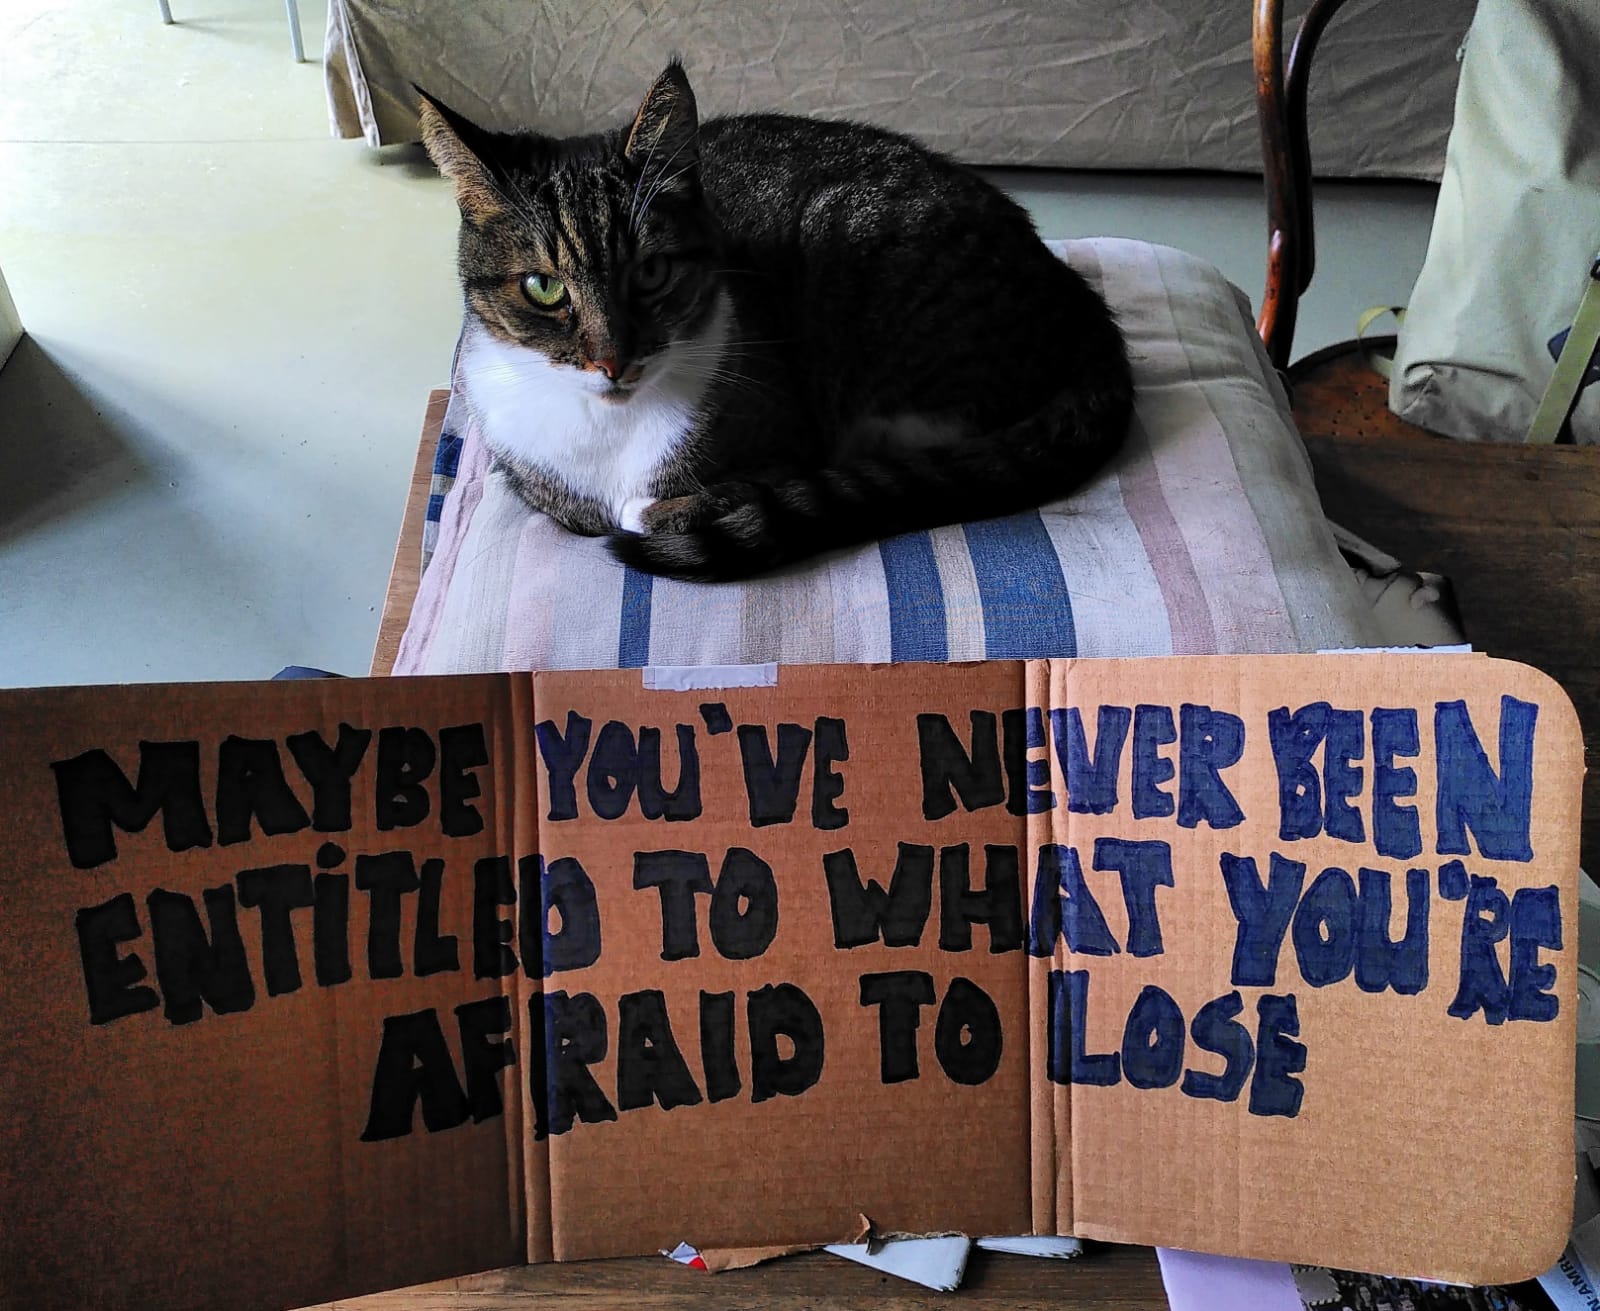 MAYBE YOU'VE NEVER BEEN
ENTiTLED TO WHAT YOU'RE
AFRAID TO LOSE